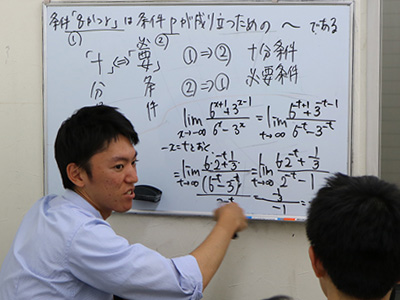 条件「qかつr」は条件pが成り立つための 〜 である
① ②
「十」⇔「必要」 ①⇒② 十分条件
分 条 ②⇒① 必要条件
件
lim x→-∞ (6^{x+1}+3^{x-1})/(6^x-3^x) = lim t→∞ (6^{-t+1}+3^{-t-1})/(6^{-t}-3^{-t})
-x=tとおく
= lim t→∞ = lim t→∞ (6·2^{-t}+1/3)/(2^{-t}-1)
= (1/3)/(-1) =